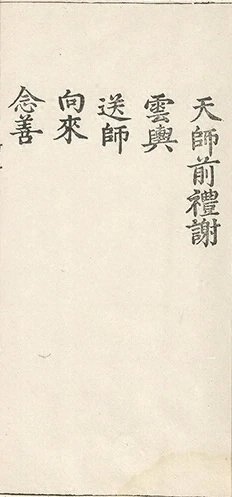 天師前禮謝
雲輿
送師
向來
念善